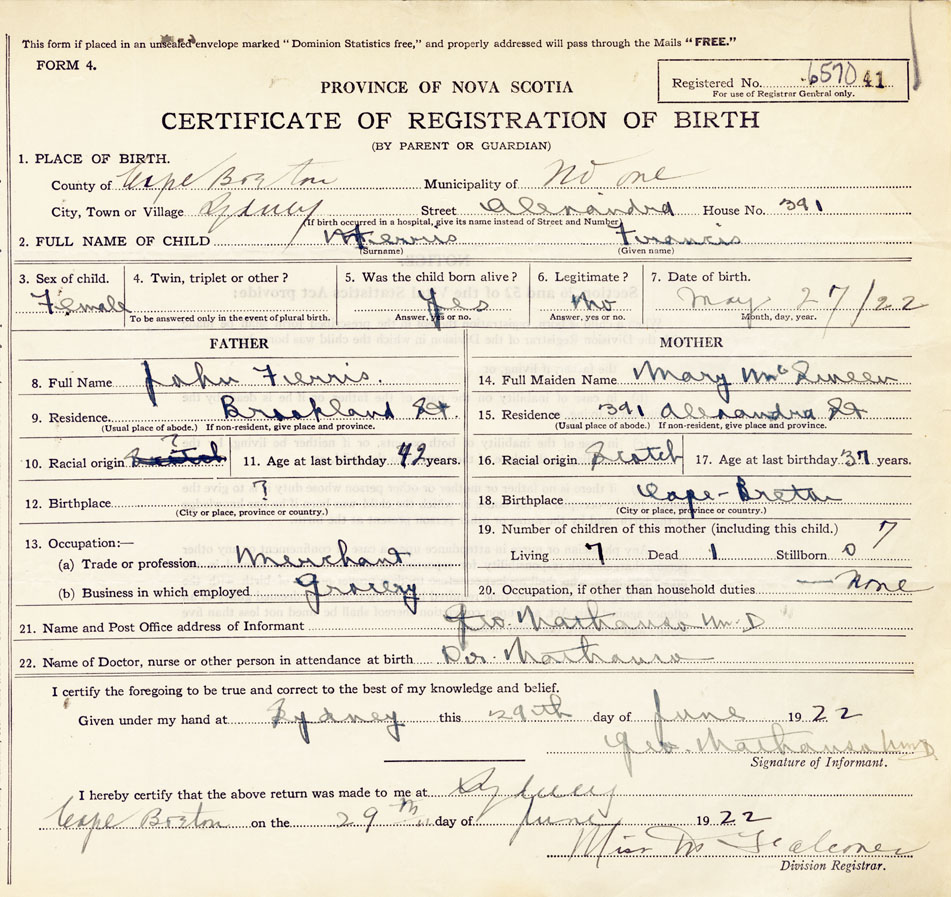 This form if placed in an unsealed envelope marked "Dominion Statistics free," and properly addressed will pass through the Mails "FREE."
FORM 4.
Registered No. 6570 41
For use of Registrar General only.
PROVINCE OF NOVA SCOTIA
CERTIFICATE OF REGISTRATION OF BIRTH
(BY PARENT OR GUARDIAN)
1. PLACE OF BIRTH.
County of Cape Breton Municipality of No one
City, Town or Village Sydney Street Alexandra House No. 391
(If birth occurred in a hospital, give its name instead of Street and Number)
2. FULL NAME OF CHILD Ferris Francis
(Surname) (Given name)
3. Sex of child. 4. Twin, triplet or other? 5. Was the child born alive? 6. Legitimate? 7. Date of birth.
Female Yes No May 27/22
To be answered only in the event of plural birth. Answer, yes or no. Answer, yes or no. Month, day, year.
FATHER
8. Full Name John Ferris.
9. Residence Brookland St.
(Usual place of abode.) If non-resident, give place and province.
?
10. Racial origin Scotch 11. Age at last birthday 42 years.
12. Birthplace ?
(City or place, province or country.)
13. Occupation:—
(a) Trade or profession Merchant
(b) Business in which employed Grocery
MOTHER
14. Full Maiden Name Mary
15. Residence 391 Alexandra St
(Usual place of abode.) If non-resident, give place and province.
16. Racial origin Scotch 17. Age at last birthday 37 years.
18. Birthplace Cape-Breton
(City or place, province or country.)
19. Number of children of this mother (including this child.) 7
Living 7 Dead 1 Stillborn 0
20. Occupation, if other than household duties — None
21. Name and Post Office address of Informant Geo. M.D
22. Name of Doctor, nurse or other person in attendance at birth Dr.
I certify the foregoing to be true and correct to the best of my knowledge and belief.
Given under my hand at Sydney this 29th day of June 1922
Geo. M.D.
Signature of Informant.
I hereby certify that the above return was made to me at Sydney
Cape Breton on the 29th day of June 1922
Miss M Falconer
Division Registrar.